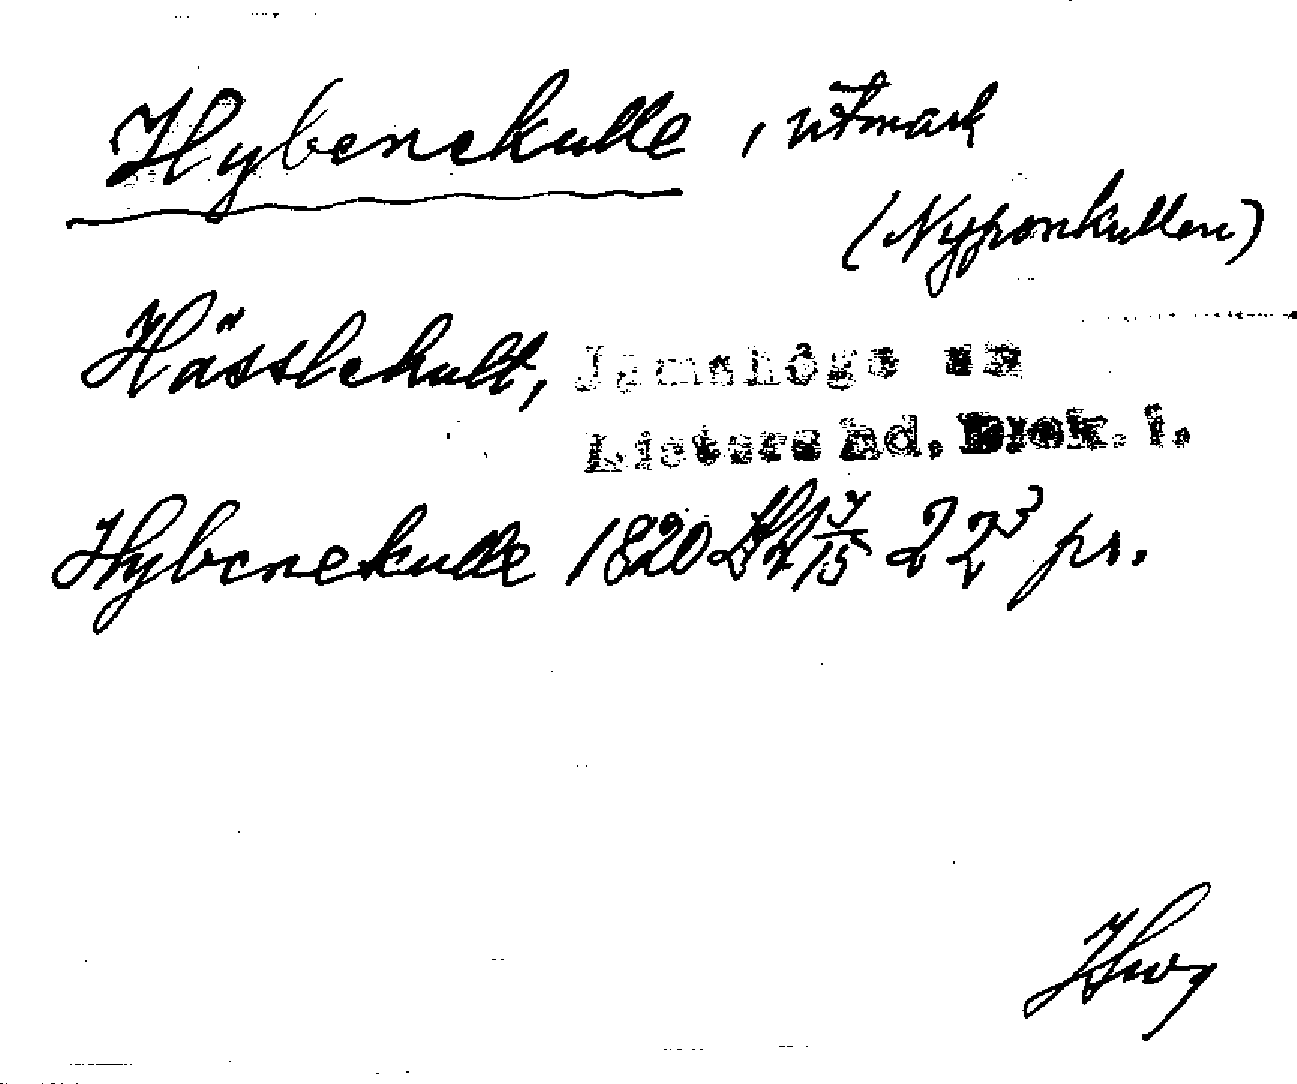 Hybenekulle, utmark
(Nyponkullen)
Hässlehult, Jämshögs sn
Listers hd, Blek. l.
Hybenekulle 1820 22³ ps.